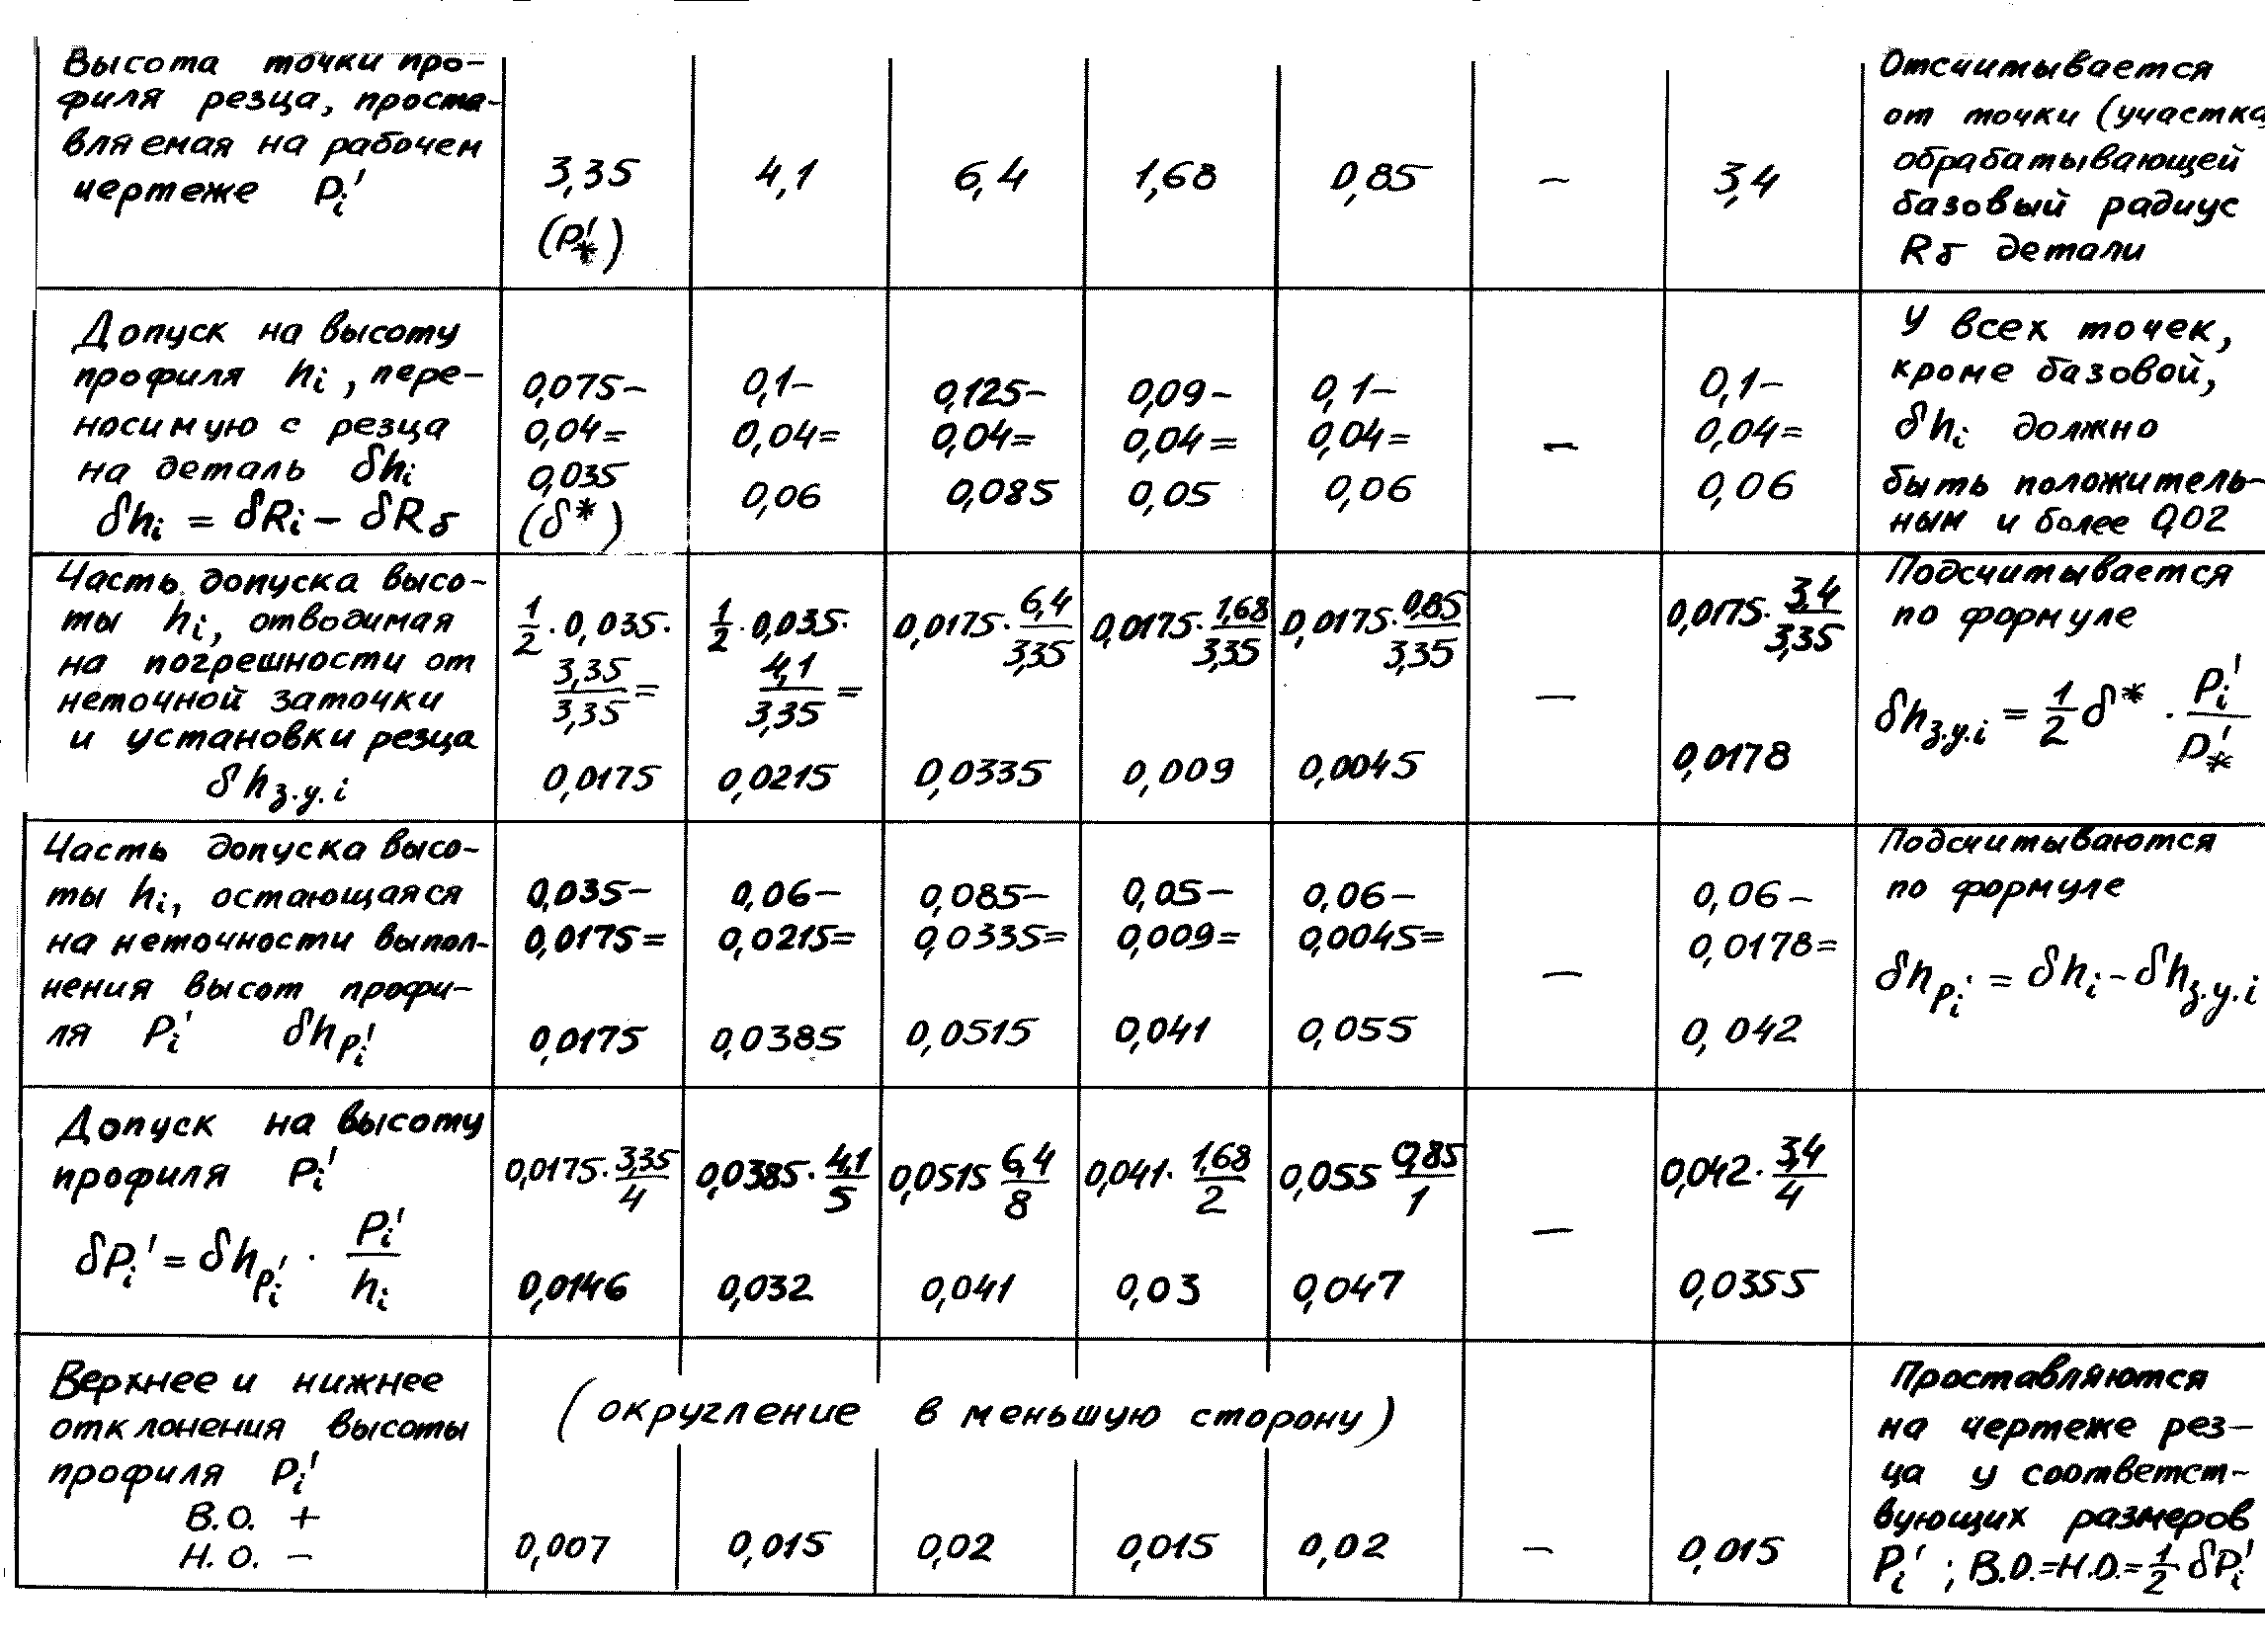 Высота точки про-
филя резца, проста-
вляемая на рабочем
чертеже Pi'
3,35
(P*')
4,1
6,4
1,68
0,85
–
3,4
Отсчитывается
от точки (участка
обрабатывающей
базовый радиус
Rδ детали
Допуск на высоту
профиля hi, пере-
носимую с резца
на деталь δhi
δhi = δRi – δRδ
0,075–
0,04=
0,035
(δ*)
0,1–
0,04=
0,06
0,125–
0,04=
0,085
0,09–
0,04=
0,05
0,1–
0,04=
0,06
–
0,1–
0,04=
0,06
У всех точек,
кроме базовой,
δhi должно
быть положитель-
ным и более 0,02
Часть допуска высо-
ты hi, отводимая
на погрешности от
неточной заточки
и установки резца
δhз.у.i
1/2 · 0,035·
3,35/3,35 =
0,0175
1/2 · 0,035·
4,1/3,35 =
0,0215
0,0175· 6,4/3,35
0,0335
0,0175· 1,68/3,35
0,009
0,0175· 0,85/3,35
0,0045
–
0,0175· 3,4/3,35
0,0178
Подсчитывается
по формуле
δhз.у.i = 1/2 δ* · Pi'/P*'
Часть допуска высо-
ты hi, остающаяся
на неточности выпол-
нения высот профи-
ля Pi' δhPi'
0,035–
0,0175=
0,0175
0,06–
0,0215=
0,0385
0,085–
0,0335=
0,0515
0,05–
0,009=
0,041
0,06–
0,0045=
0,055
–
0,06–
0,0178=
0,042
Подсчитываются
по формуле
δhPi' = δhi – δhз.у.i
Допуск на высоту
профиля Pi'
δPi' = δhPi' · Pi'/hi
0,0175· 3,35/4
0,0146
0,0385· 4,1/5
0,032
0,0515 6,4/8
0,041
0,041· 1,68/2
0,03
0,055 0,85/1
0,047
–
0,042· 3,4/4
0,0355
Верхнее и нижнее
отклонения высоты
профиля Pi'
В.О. +
Н.О. –
(округление в меньшую сторону)
0,007
0,015
0,02
0,015
0,02
–
0,015
Проставляются
на чертеже рез-
ца у соответст-
вующих размеров
Pi' ; В.О.=Н.О.= 1/2 δPi'